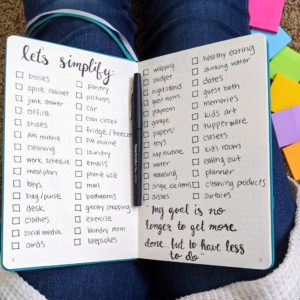 let's simplify:
books
spice cabinet
junk drawer
office
shoes
AM routine
cleaning
work schedule
meal plan
keys
bag/purse
desk
clothes
social media
cards
pantry
pictures
car
coat closet
fridge/freezer
PM routine
laundry
emails
phone use
mail
bathrooms
grocery shopping
exercise
laundry room
keepsakes
wrapping
budget
nightstand
guest room
playroom
garage
papers!
toys
nap routine
water
traveling
single use items
dishes
healthy eating
drinking water
dates
guest bath
memories
kids art
tupperware
closets
kids room
eating out
planner
cleaning products
surfaces
"my goal is no
longer to get more
done, but to have less
to do"